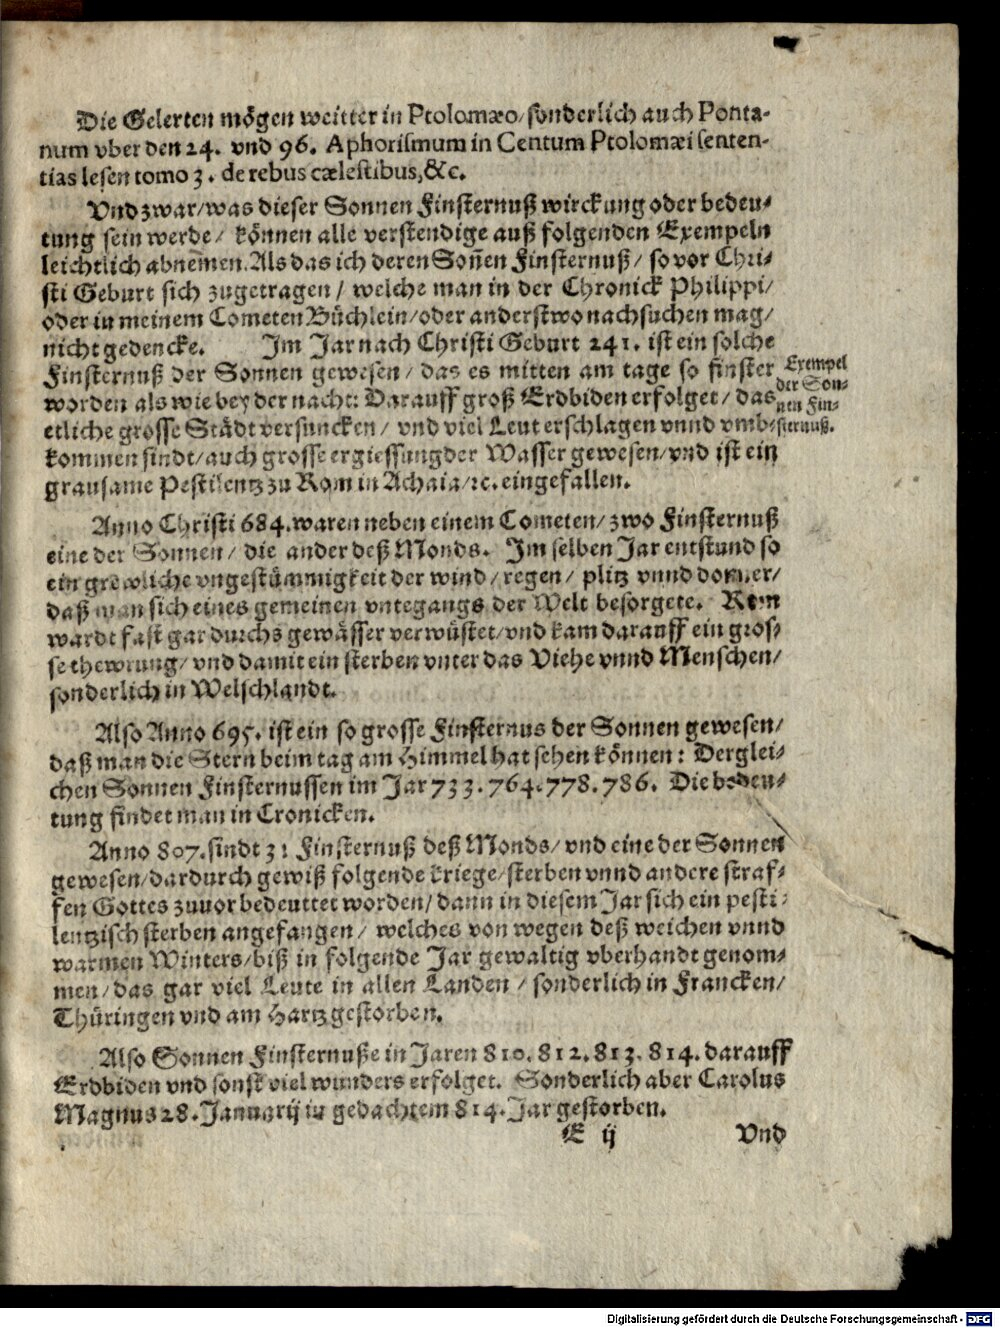 Die Gelerten mögen weitter in Ptolomæo/sonderlich auch Ponta-
num vber den 24. vnd 96. Aphorismum in Centum Ptolomæi senten-
tias lesen tomo 3. de rebus cælestibus,&c.
Vnd zwar/was dieser Sonnen Finsternuß wirckung oder bedeu-
tung sein werde/ können alle verstendige auß folgenden Exempeln
leichtlich abnemen. Als das ich deren Soñen Finsternuß/ so vor Chri-
sti Geburt sich zugetragen/ welche man in der Chronick Philippi/
oder in meinem Cometen Büchlein/oder anderstwo nachsuchen mag/
nicht gedencke. Im Jar nach Christi Geburt 241. ist ein solche
Finsternuß der Sonnen gewesen/ das es mitten am tage so finster
worden als wie bey der nacht: Darauff groß Erdbiden erfolget/ das
etliche grosse Städt versuncken/ vnd viel Leut erschlagen vnnd vmb-
kommen sindt/auch grosse ergiessung der Wasser gewesen/vnd ist ein
grausame Pestilentz zu Rom in Achaia/ꝛc. eingefallen.
Exempel
der Son-
nen Fin-
sternuß.
Anno Christi 684. waren neben einem Cometen/ zwo Finsternuß
eine der Sonnen/ die ander deß Monds. Im selben Jar entstund so
ein grewliche vngestümmigkeit der wind/regen/ plitz vnnd donner/
daß man sich eines gemeinen vntegangs der Welt besorgete. Rom
wardt fast gar durchs gewässer verwüstet/vnd kam darauff ein gros-
se thewrung/ vnd damit ein sterben vnter das Viehe vnnd Menschen/
sonderlich in Welschlandt.
Also Anno 695. ist ein so grosse Finsternus der Sonnen gewesen/
daß man die Stern beim tag am Himmel hat sehen können: Derglei-
chen Sonnen Finsternussen im Jar 733. 764. 778. 786. Die bedeu-
tung findet man in Cronicken.
Anno 807. sindt 31 Finsternuß deß Monds/ vnd eine der Sonnen
gewesen/dardurch gewiß folgende kriege/sterben vnnd andere straf-
fen Gottes zuuor bedeuttet worden/ dann in diesem Jar sich ein pesti-
lentzisch sterben angefangen/ welches von wegen deß weichen vnnd
warmen Winters/biß in folgende Jar gewaltig vberhandt genom-
men/das gar viel Leute in allen Landen/ sonderlich in Francken/
Thüringen vnd am Hartz gestorben.
Also Sonnen Finsternuße in Jaren 810. 812. 813. 814. darauff
Erdbiden vnd sonst viel wunders erfolget. Sonderlich aber Carolus
Magnus 28. Januarij in gedachtem 814. Jar gestorben.
E ij Vnd
Digitalisierung gefördert durch die Deutsche Forschungsgemeinschaft - DFG